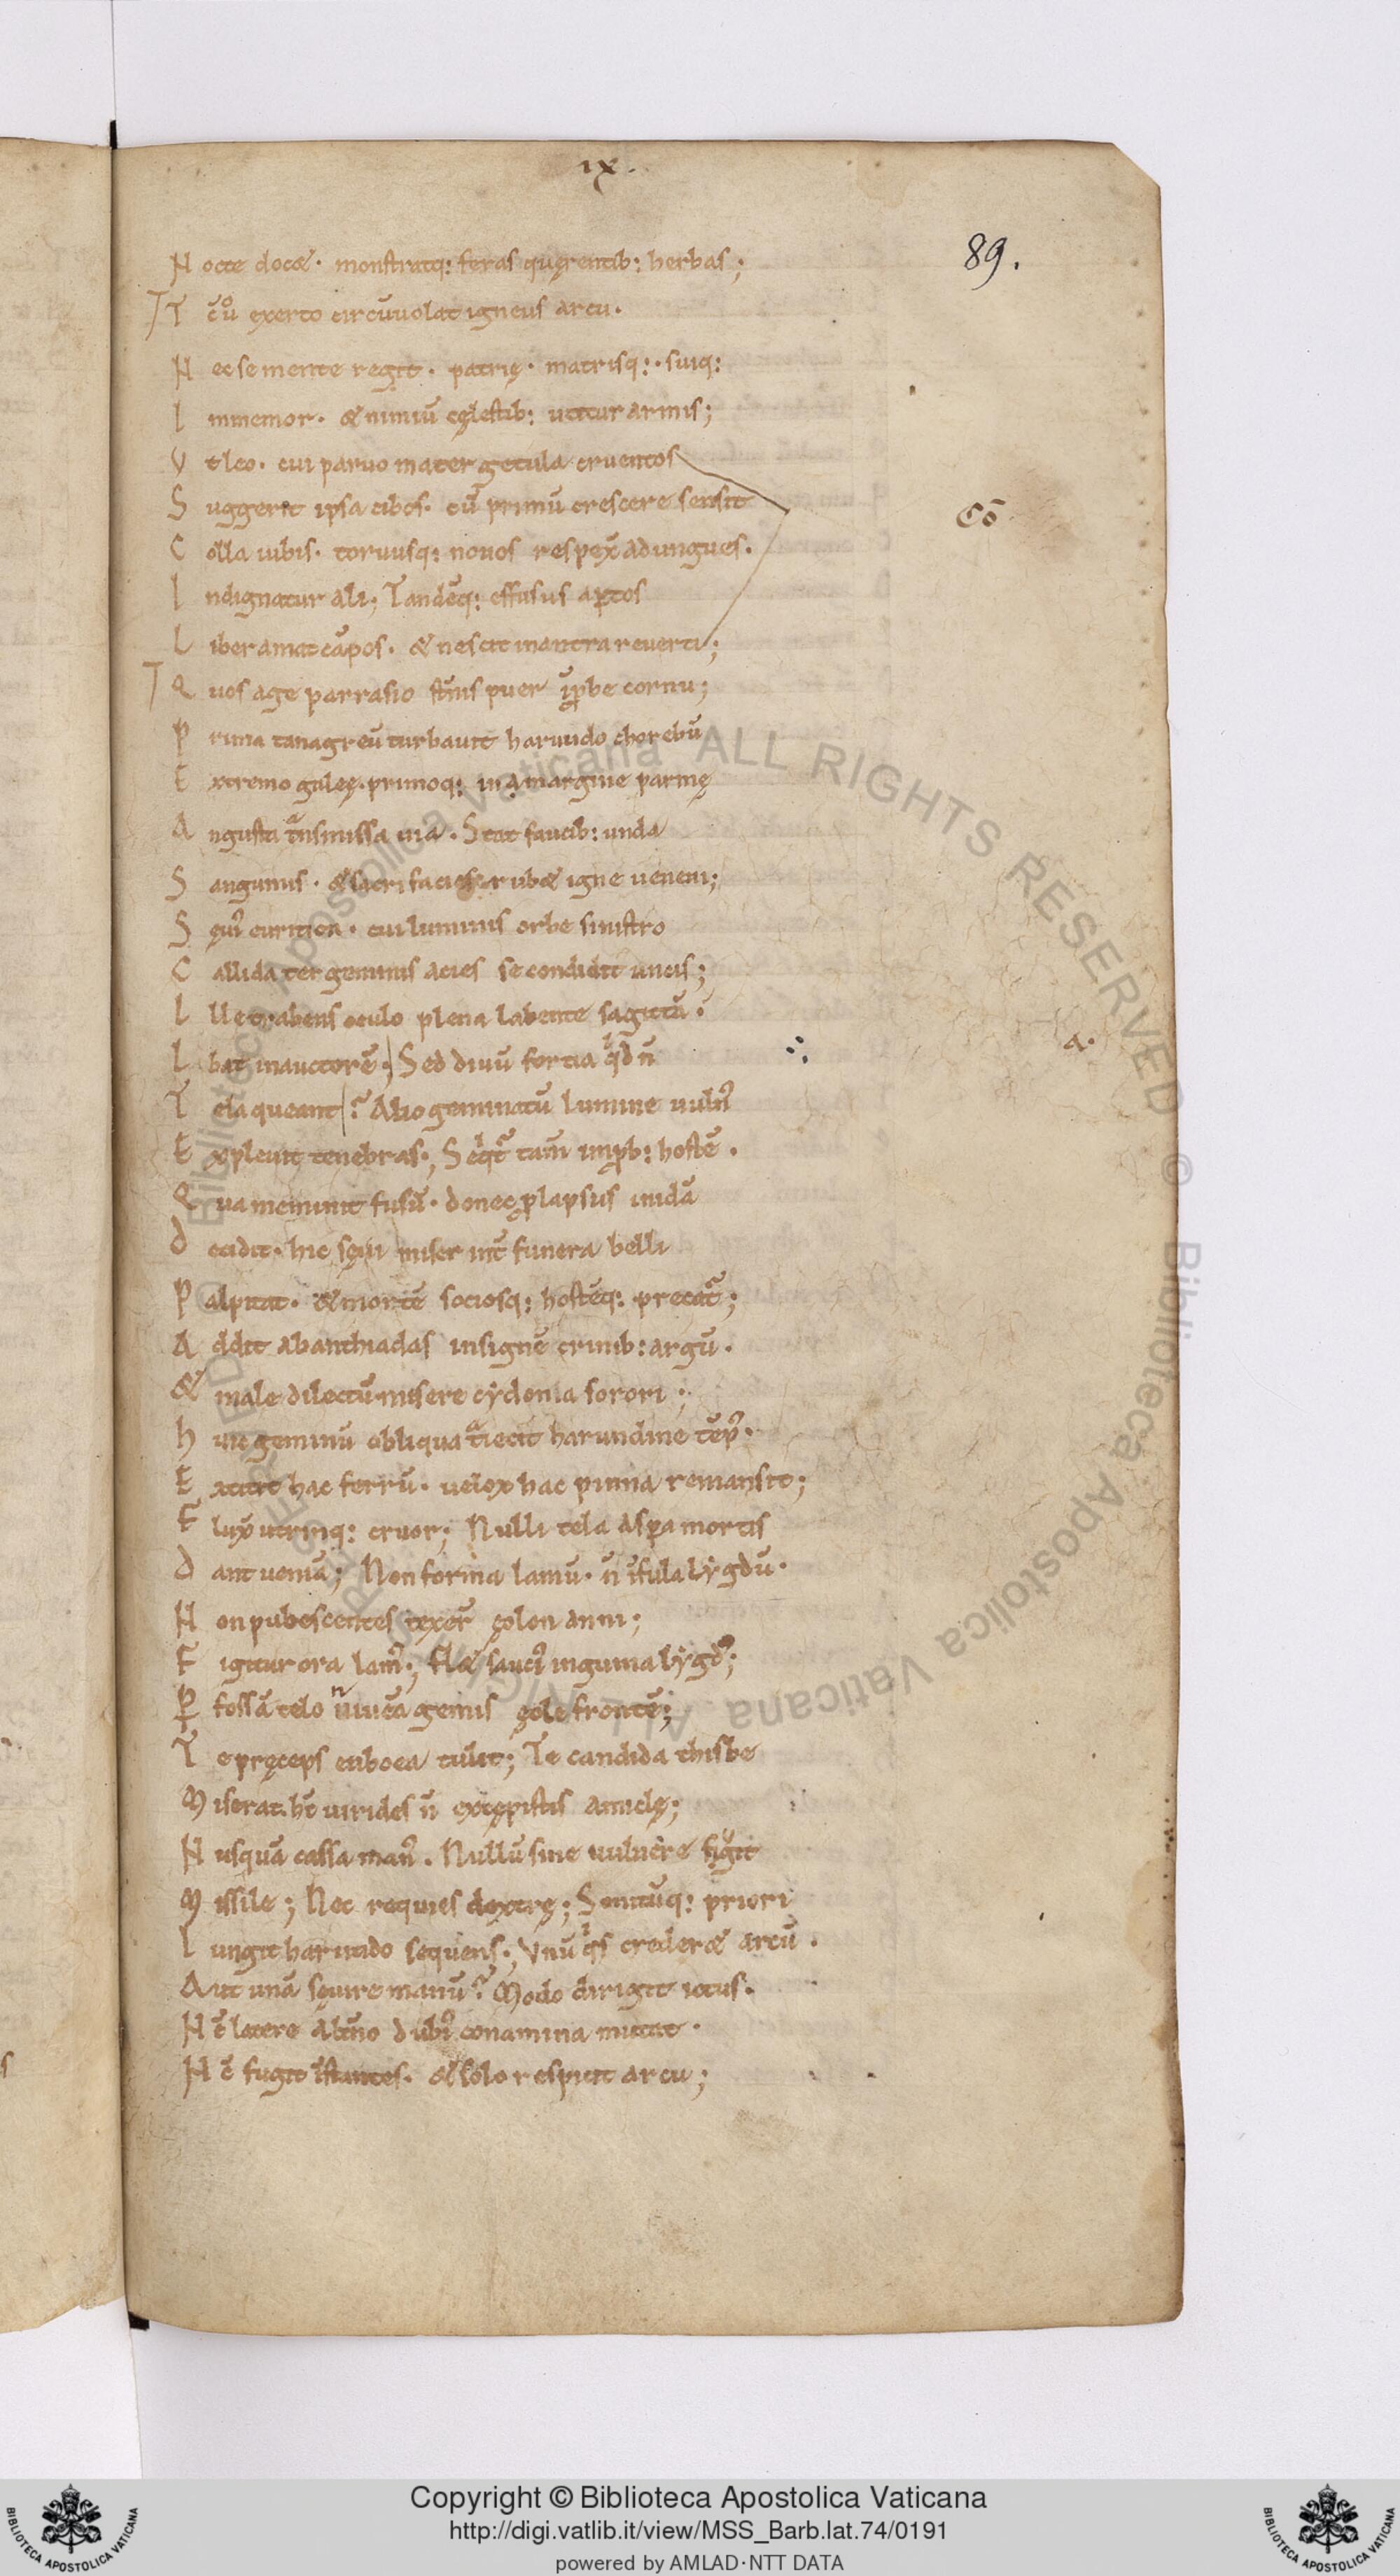 ix.
89.
N octe docæ. monstratq: feras quęrentib: herbas;
T cũo exerto circũuolat igneus arcu.
N ec se mente regit. patrię. matrisq:. suiq:
I mmemor. & nimiũ cęlestib: utitur armis;
V t leo. cui paruo mater getula cruentos
S uggerit ipsa cibos. cũ primũ crescere sensit
Cō
C olla iubis. toruusq: nouos respex& ad ungues.
I ndignatur ali; Tandẽq: effusus aptos
L iber amat cãpos. & nescit in antra reuerti;
Q uos age parrasio st̃nis puer ip̃be cornu;
P rima tanagreũ turbauit harundo chorebũ
E xtremo galeę. primoq: in margine parmę
A ngusta t̃nsmissa uia. Stat faucib: unda
S anguinis. & sacri facies rub& igne ueneni;
S ęui' eurition. cui luminis orbe sinistro
C allida tergeminis acies se condidit uncis;
I lle trabens oculo plena labente sagittã.
I bat in auctorẽ.; Sed diuũ fortia qd ñ
a.
T ela queant? Alio geminatũ lumine uuln'
E xpleuit tenebras.; Seqt̃ tam̃ imp̃b: hostẽ.
Q ua meminit fusũ. donec p̃lapsus in idã
D ecidit. hic sęui miser int̃ funera belli
P alpitat. & mortẽ sociosq: hostẽq: precat̃;
A ddit abanthiadas insignẽ crinib: argũ.
& male dilectũ misere cydona sorori;
h uic geminũ obliqua t̃iecit harundine tẽp'.
E xtitit hac ferrũ. uelox hac pinna remansit;
F lux& utrinq: cruor; Nulli tela aspa mortis
D ant ueniã; Non forma lamũ. ñ ĩfula lygdũ.
N on pubescentes texer̃ ęolon anni;
F igitur ora lam'.; fl& sauci' inguina lygd';
P fossã telo niueã gemis ęole frontẽ;
T e pręceps euboea tulit; Te candida thisbe
M iserat. hc̃ uirides ñ excepistis amiclę;
N usquã cassa man'. Nullũ sine uulnere fugit
M issile; Nec requies dextrę; Sonitũq: priori
I ungit harundo sequens.; Vnũ qs creder& arcũ.
A ut unã sęuire manũ? Modo dirigit ictus.
N c̃ latere alt̃no dubi' conamina mutat.
N c̃ fugit ĩstantes. & solo respicit arcu;
Copyright © Biblioteca Apostolica Vaticana
http://digi.vatlib.it/view/MSS_Barb.lat.74/0191
powered by AMLAD·NTT DATA